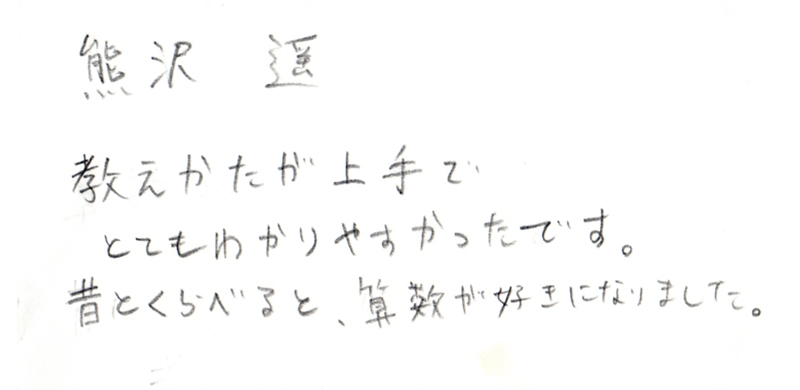 熊沢 遥
教えかたが上手で
とてもわかりやすかったです。
昔とくらべると、算数が好きになりました。